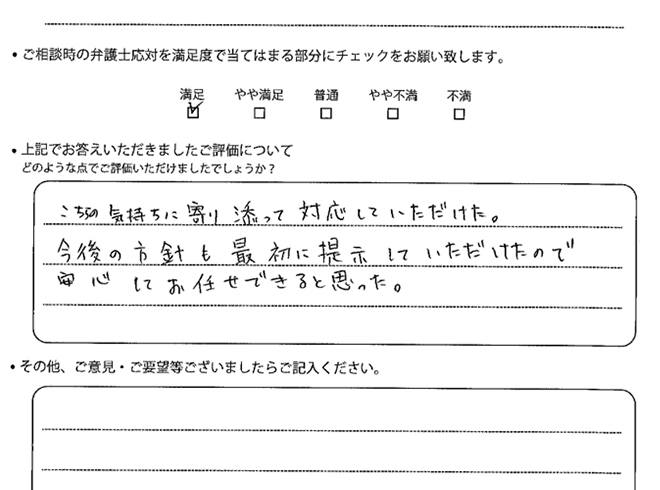 ・ご相談時の弁護士応対を満足度で当てはまる部分にチェックをお願い致します。
満足 やや満足 普通 やや不満 不満
・上記でお答えいただきましたご評価について
どのような点でご評価いただけましたでしょうか？
こちらの気持ちに寄り添って対応していただけた。
今後の方針も最初に提示していただけたので
安心してお任せできると思った。
・その他、ご意見・ご要望等ございましたらご記入ください。